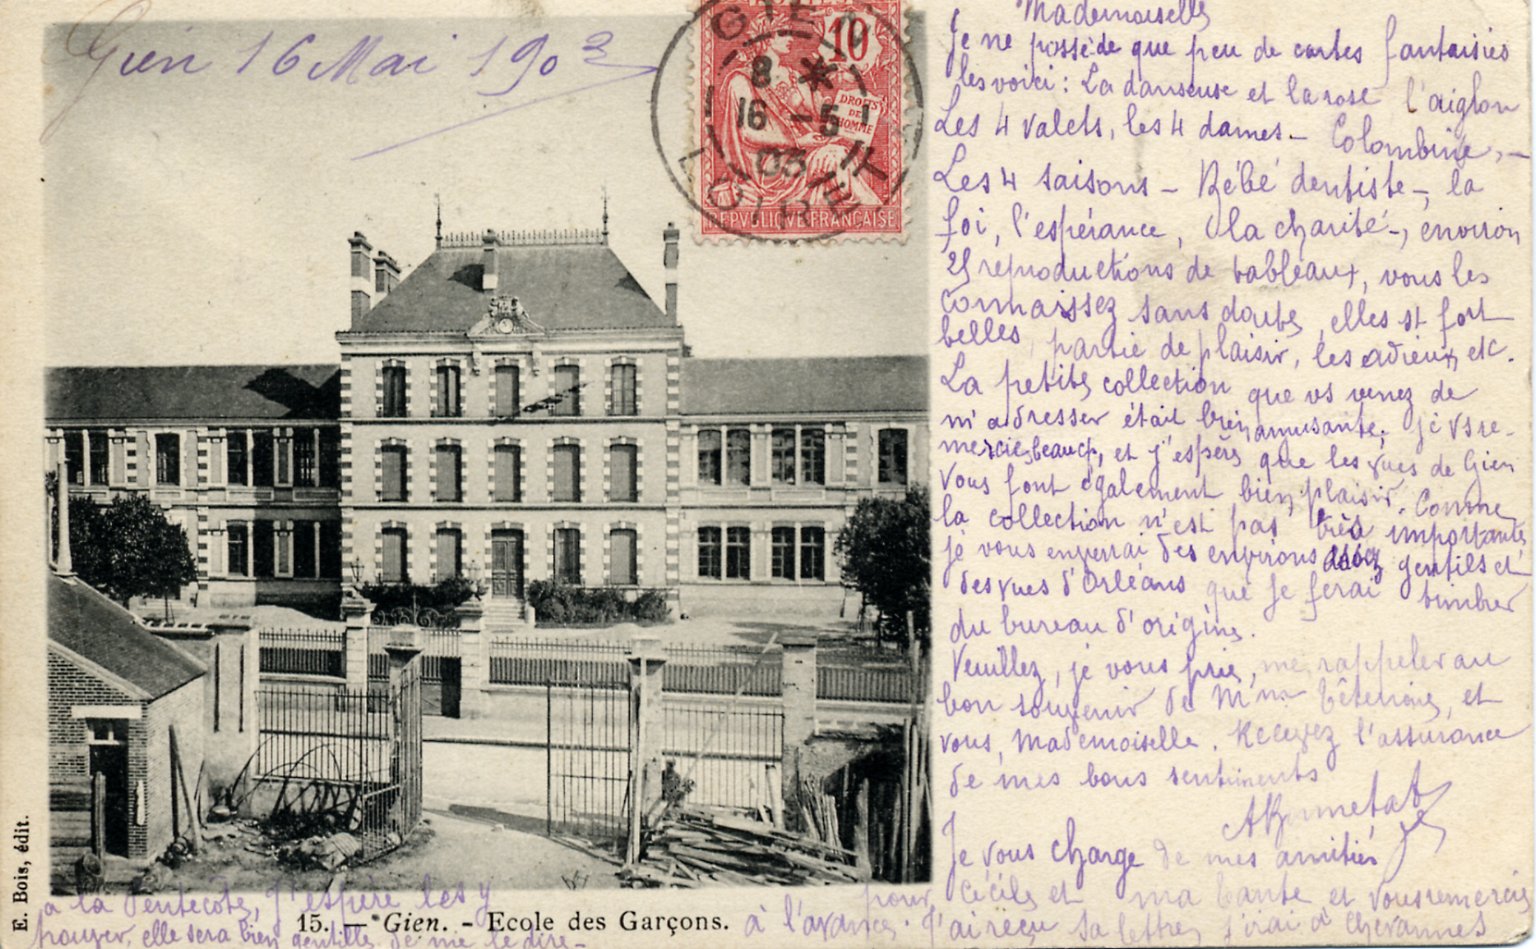 Gien 16 Mai 1903
GIEN
8 *
16 - 5
03
LOIRET
10
DROITS
DE
L'HOMME
REPVBLIQVE FRANÇAISE
Mademoiselle
Je ne possède que peu de cartes fantaisies
les voici : La danseuse et la rose l'aiglon
Les 4 valets, les 4 dames - Colombine, -
Les 4 saisons - Bébé dentiste -, la
foi, l'espérance, la charité -, environ
25 reproductions de tableaux, vous les
connaissez sans doute, elles st fort
belles, partie de plaisir, les adieux, etc.
La petite collection que vs venez de
m'adresser était bien amusante, je vs re-
mercie beaucp, et j'espère que les vues de Gien
vous font également bien plaisir. Comme
la collection n'est pas très importante
je vous enverrai des environs assez gentils et
des vues d'Orléans que je ferai timbrer
du bureau d'origine.
Veuillez, je vous prie, me rappeler au
bon souvenir de Mme , et
vous, Mademoiselle. Recevez l'assurance
de mes bons sentiments
Je vous charge de mes amitiés
pour Cécile et ma tante et vous remercie
à l'avance. J'ai reçu sa lettre, j'irai à Chevannes
à la Pentecôte, j'espère les y
trouver, elle sera bien gentille de me le dire -
15. - Gien. - Ecole des Garçons.
E. Bois, édit.